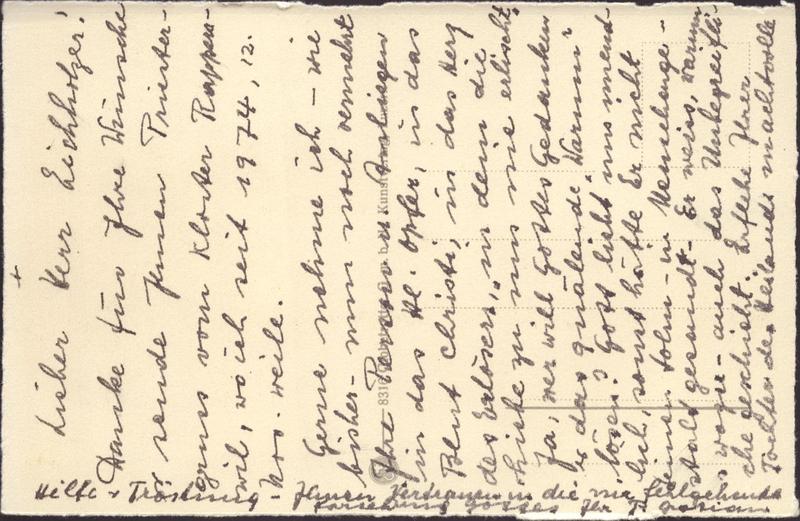 +
Lieber Herr Eichholzer!
Danke für Ihre Wünsche
u sende Ihnen Priester-
gruss vom Kloster Rappers-
wil, wo ich seit 1974, 12.
Nov. weile.
Gerne nehme ich – wie
bisher – nun noch vermehrt
Ihre Person u. Anliegen
in das Hl. Opfer, in das
Blut Christi, in das Herz
des Erlösers, in dem die
Liebe zu uns nie erlischt.
Ja, wer will Gottes Gedanken
u das quälende "Warum"
lösen? Gott liebt uns unend-
lich, sonst hätte Er nicht
seinen Sohn – in Menschenge-
stalt gesandt. Er weiss, warum
u wozu – auch das Unbegreifli-
che geschieht. Erflehe Ihrer
Tochter des Heilands machtvolle
Hilfe + Tröstung – Ihnen Vertrauen in die nie fehlgehende
Vorsehung Gottes Ihr P.
8310
Kunst